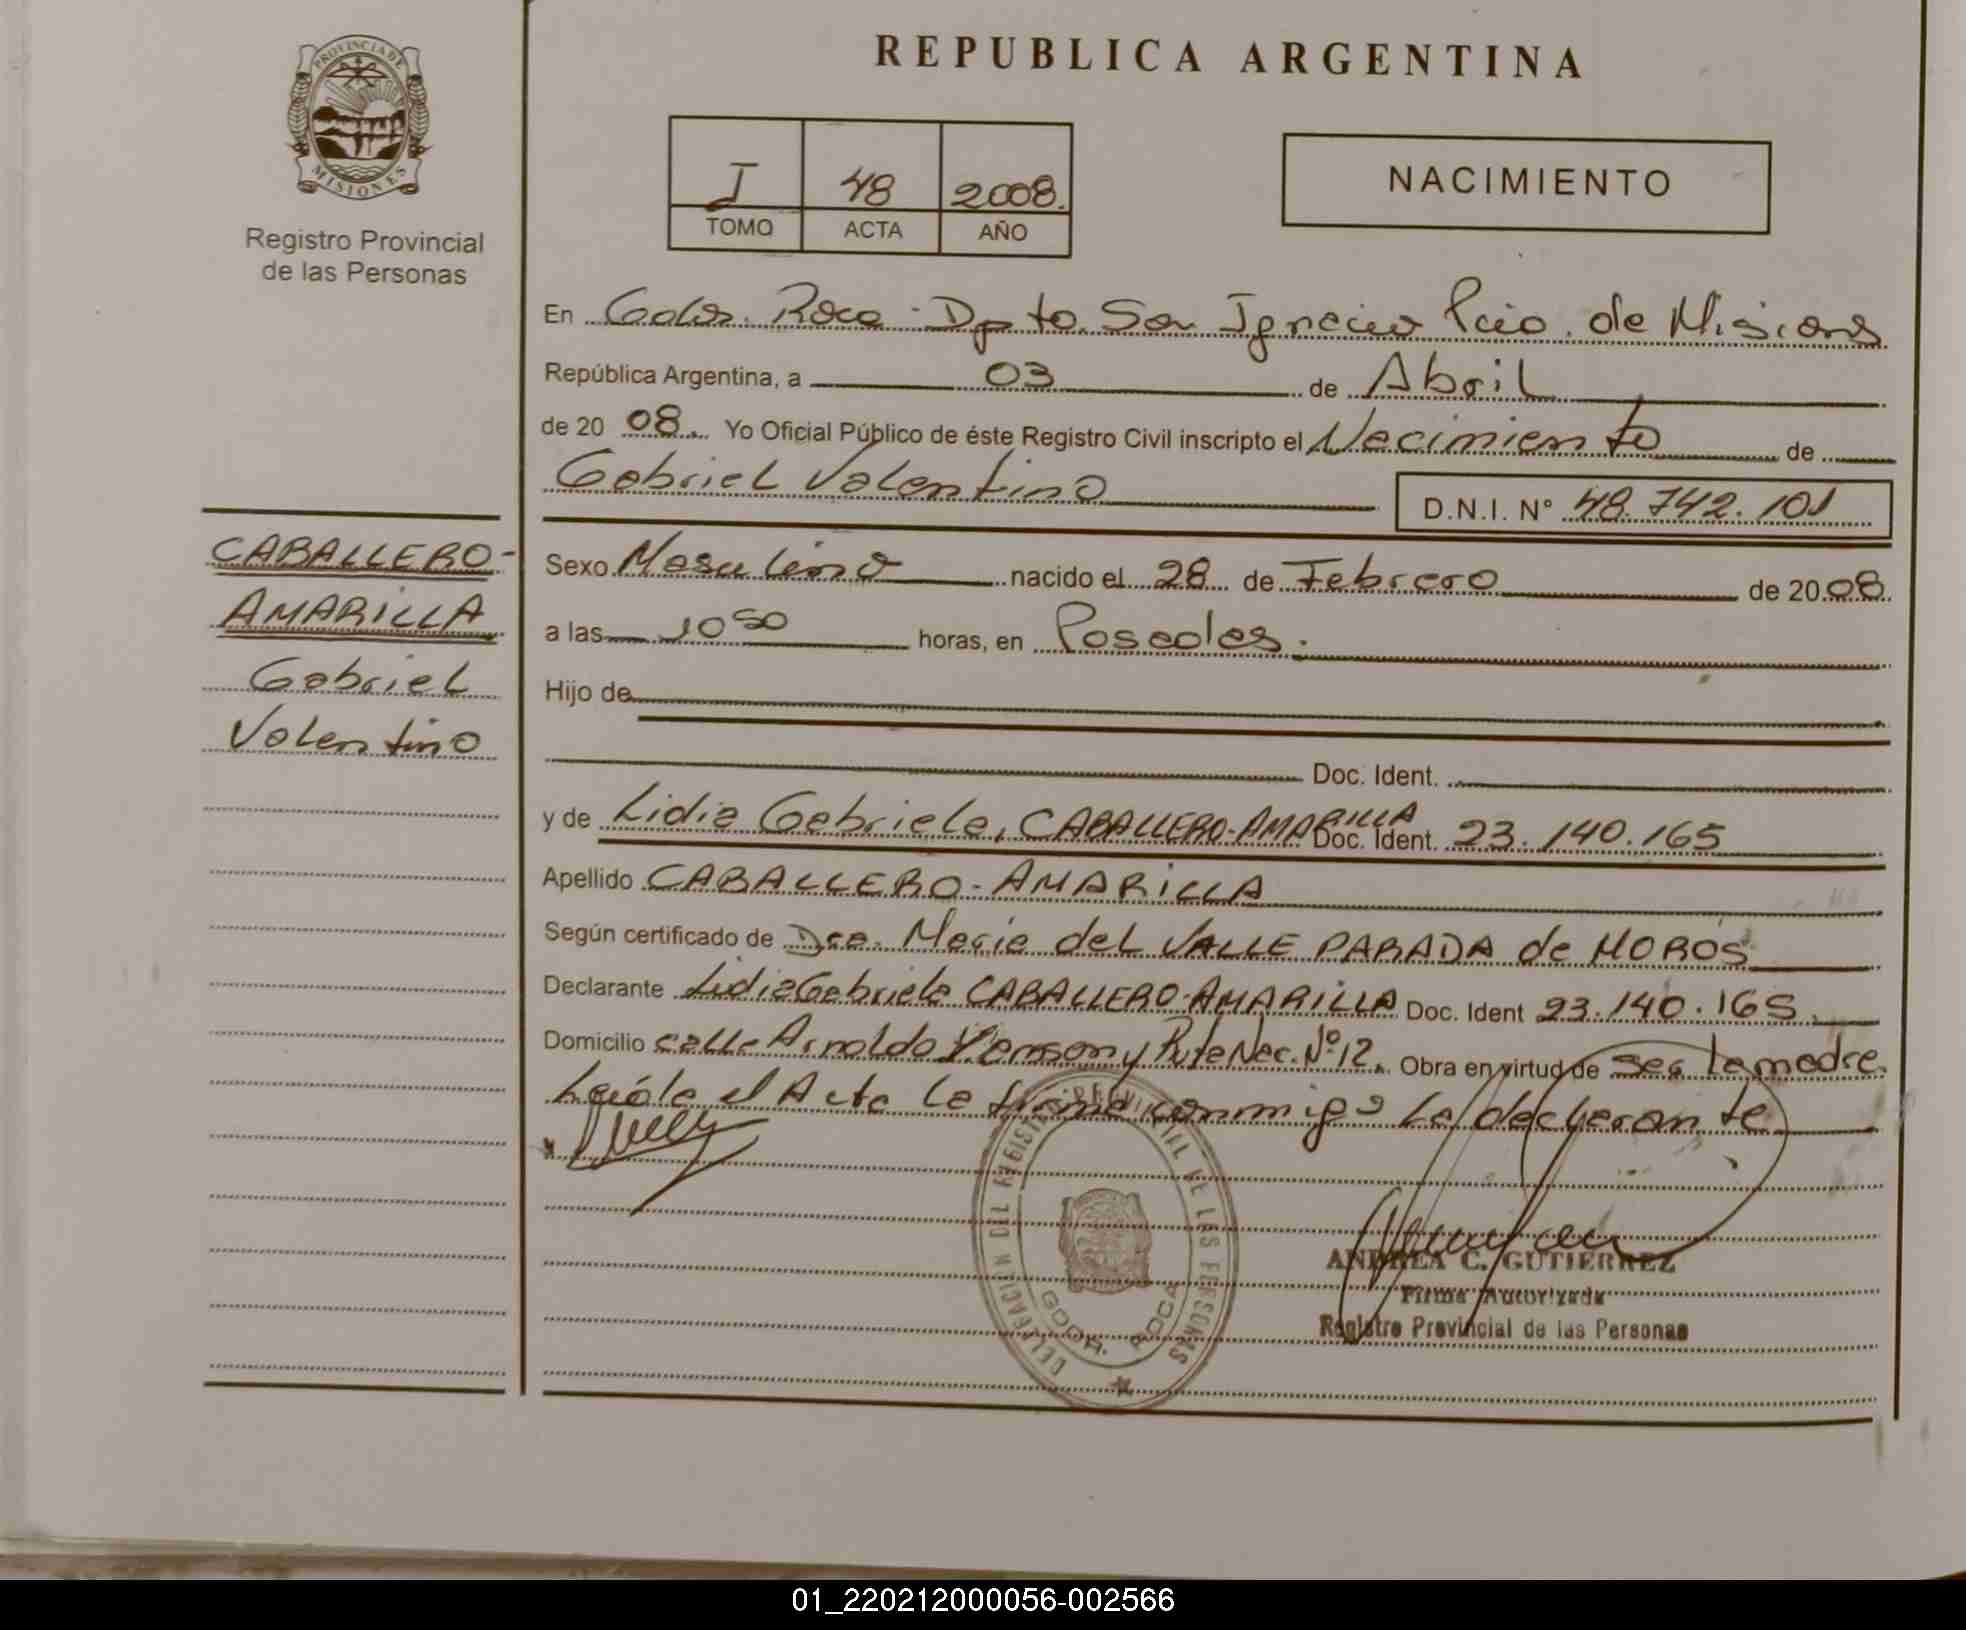 REPUBLICA ARGENTINA
PROVINCIA DE
MISIONES
Registro Provincial
de las Personas
I 48 2008.
TOMO ACTA AÑO
NACIMIENTO
En Gdor. Roca - Dpto. San Ignacio Pcia. de Misiones
República Argentina, a 03 de Abril
de 20 08. Yo Oficial Público de éste Registro Civil inscripto el Nacimiento de
Gabriel Valentino
D.N.I. Nº 48.742.101
CABALLERO-
AMARILLA
Gabriel
Valentino
Sexo Masculino nacido el 28 de Febrero de 20 08.
a las 10 50 horas, en Posadas.
Hijo de
Doc. Ident.
y de Lidia Gabriela, CABALLERO-AMARILLA Doc. Ident. 23.140.165
Apellido CABALLERO-AMARILLA
Según certificado de Dra. Maria del VALLE PARADA de MOROS
Declarante Lidia Gabriela CABALLERO-AMARILLA Doc. Ident 23.140.165.
Domicilio calle Arnoldo y Ruta Nac. Nº 12. Obra en virtud de ser la madre.
Leída el Acta la firma conmigo la declarante
DELEGACION DEL REGISTRO CIVIL DE LAS PERSONAS
GDOR. ROCA
ANDREA C. GUTIERREZ
Firma Autorizada
Registro Provincial de las Personas
01_220212000056-002566